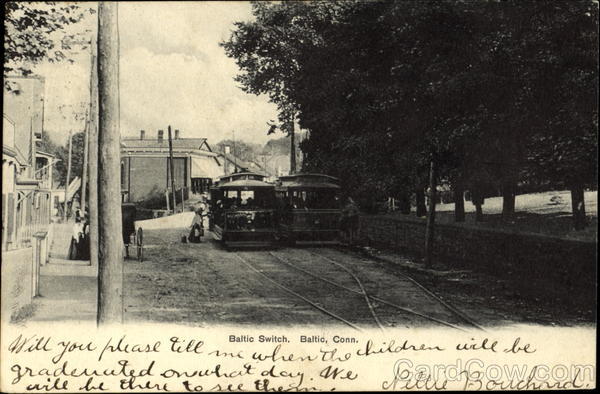 Baltic Switch. Baltic, Conn.
Will you please till me when the children will be
graderuted on what day. We
will be there to see them.
Nellie Bouchard.
CardCow.com